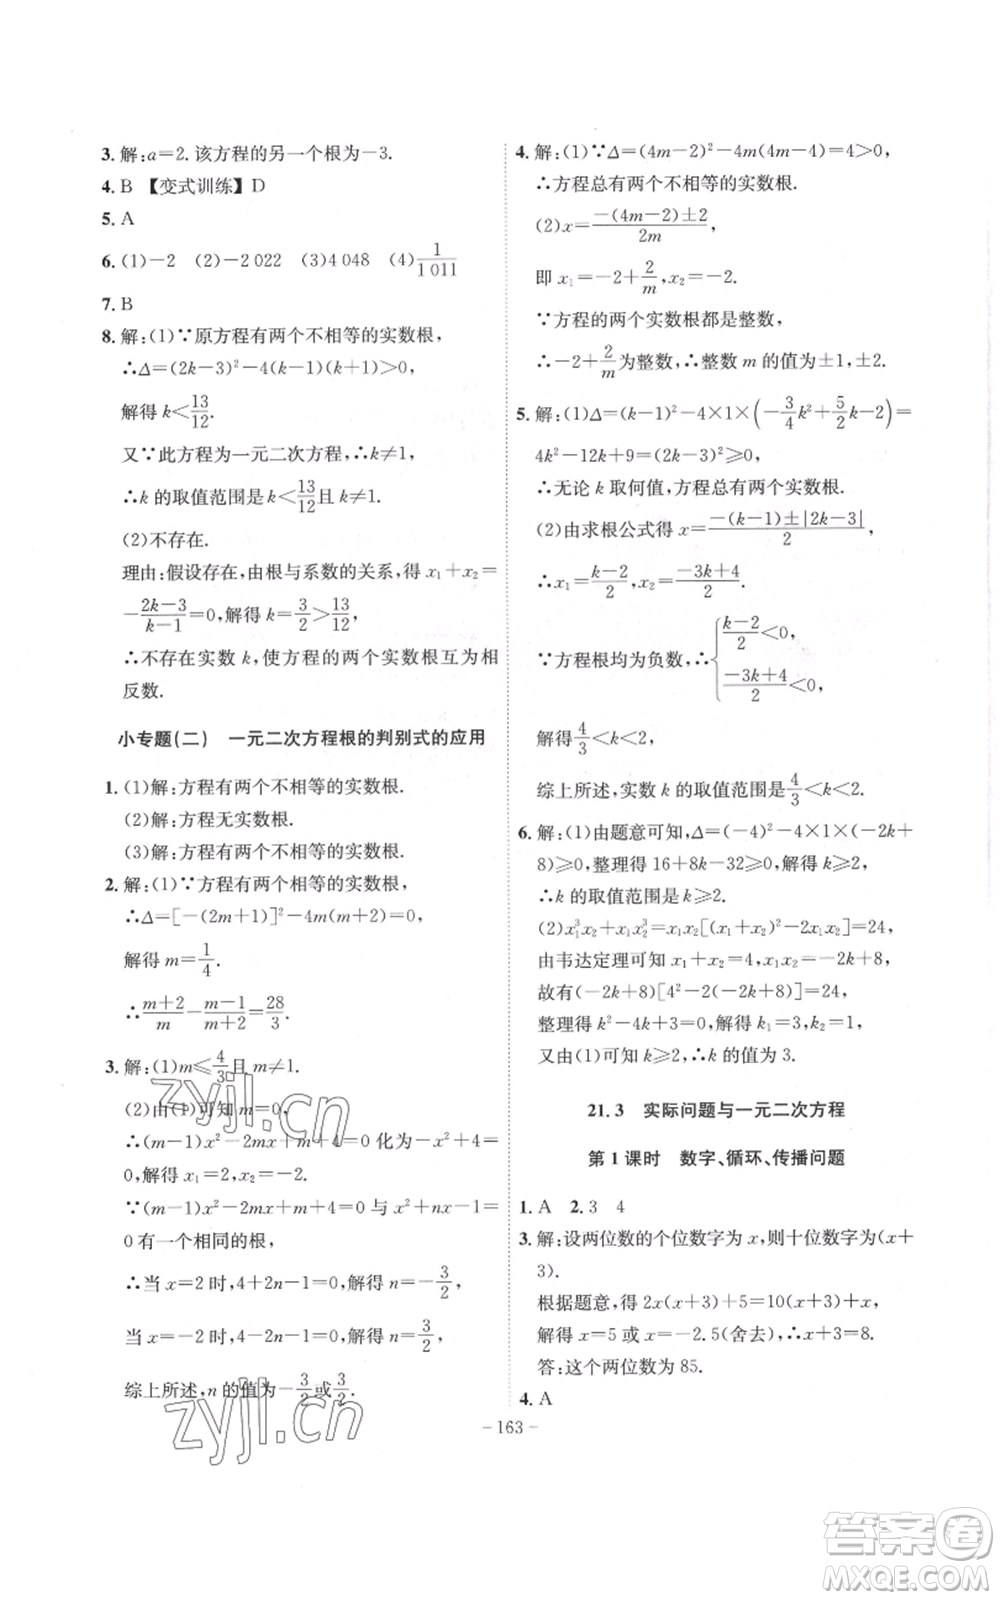 3. 解:a=2. 该方程的另一个根为-3.
4. B 【变式训练】D
5. A
6. (1)-2 (2)-2 022 (3)4 048 (4)1/1 011
7. B
8. 解:(1)∵原方程有两个不相等的实数根,
∴Δ=(2k-3)²-4(k-1)(k+1)>0,
解得 k<13/12.
又∵此方程为一元二次方程,∴k≠1,
∴k 的取值范围是 k<13/12且 k≠1.
(2)不存在.
理由:假设存在,由根与系数的关系,得 x₁+x₂=
-(2k-3)/(k-1)=0,解得 k=3/2>13/12,
∴不存在实数 k,使方程的两个实数根互为相
反数.
小专题(二) 一元二次方程根的判别式的应用
1. (1)解:方程有两个不相等的实数根.
(2)解:方程无实数根.
(3)解:方程有两个不相等的实数根.
2. 解:(1)∵方程有两个相等的实数根,
∴Δ=[-(2m+1)]²-4m(m+2)=0,
解得 m=1/4.
∴(m+2)/m-(m-1)/(m+2)=28/3.
3. 解:(1)m≤4/3且 m≠1.
(2)由(1)可知 m=0,
∴(m-1)x²-2mx+m+4=0 化为-x²+4=
0,解得 x₁=2,x₂=-2.
∵(m-1)x²-2mx+m+4=0 与 x²+nx-1=
0 有一个相同的根,
∴当 x=2 时,4+2n-1=0,解得 n=-3/2,
当 x=-2 时,4-2n-1=0,解得 n=3/2,
综上所述,n 的值为-3/2或3/2.
4. 解:(1)∵Δ=(4m-2)²-4m(4m-4)=4>0,
∴方程总有两个不相等的实数根.
(2)x=(-(4m-2)±2)/2m,
即 x₁=-2+2/m,x₂=-2.
∵方程的两个实数根都是整数,
∴-2+2/m为整数,∴整数 m 的值为±1,±2.
5. 解:(1)Δ=(k-1)²-4×1×(-3/4k²+5/2k-2)=
4k²-12k+9=(2k-3)²≥0,
∴无论 k 取何值,方程总有两个实数根.
(2)由求根公式得 x=(-(k-1)±|2k-3|)/2,
∴x₁=(k-2)/2,x₂=(-3k+4)/2.
∵方程根均为负数,∴{(k-2)/2<0,
(-3k+4)/2<0,
解得4/3<k<2.
综上所述,实数 k 的取值范围是4/3<k<2.
6. 解:(1)由题意可知,Δ=(-4)²-4×1×(-2k+
8)≥0,整理得 16+8k-32≥0,解得 k≥2,
∴k 的取值范围是 k≥2.
(2)x₁³x₂+x₁x₂³=x₁x₂[(x₁+x₂)²-2x₁x₂]=24,
由韦达定理可知 x₁+x₂=4,x₁x₂=-2k+8,
故有(-2k+8)[4²-2(-2k+8)]=24,
整理得 k²-4k+3=0,解得 k₁=3,k₂=1,
又由(1)可知 k≥2,∴k 的值为 3.
21.3 实际问题与一元二次方程
第 1 课时 数字、循环、传播问题
1. A 2. 3 4
3. 解:设两位数的个位数字为 x,则十位数字为(x+
3).
根据题意,得 2x(x+3)+5=10(x+3)+x,
解得 x=5 或 x=-2.5(舍去),∴x+3=8.
答:这个两位数为 85.
4. A
- 163 -
zyjl.cn
zyjl.cn
答案卷
MXQE.COM